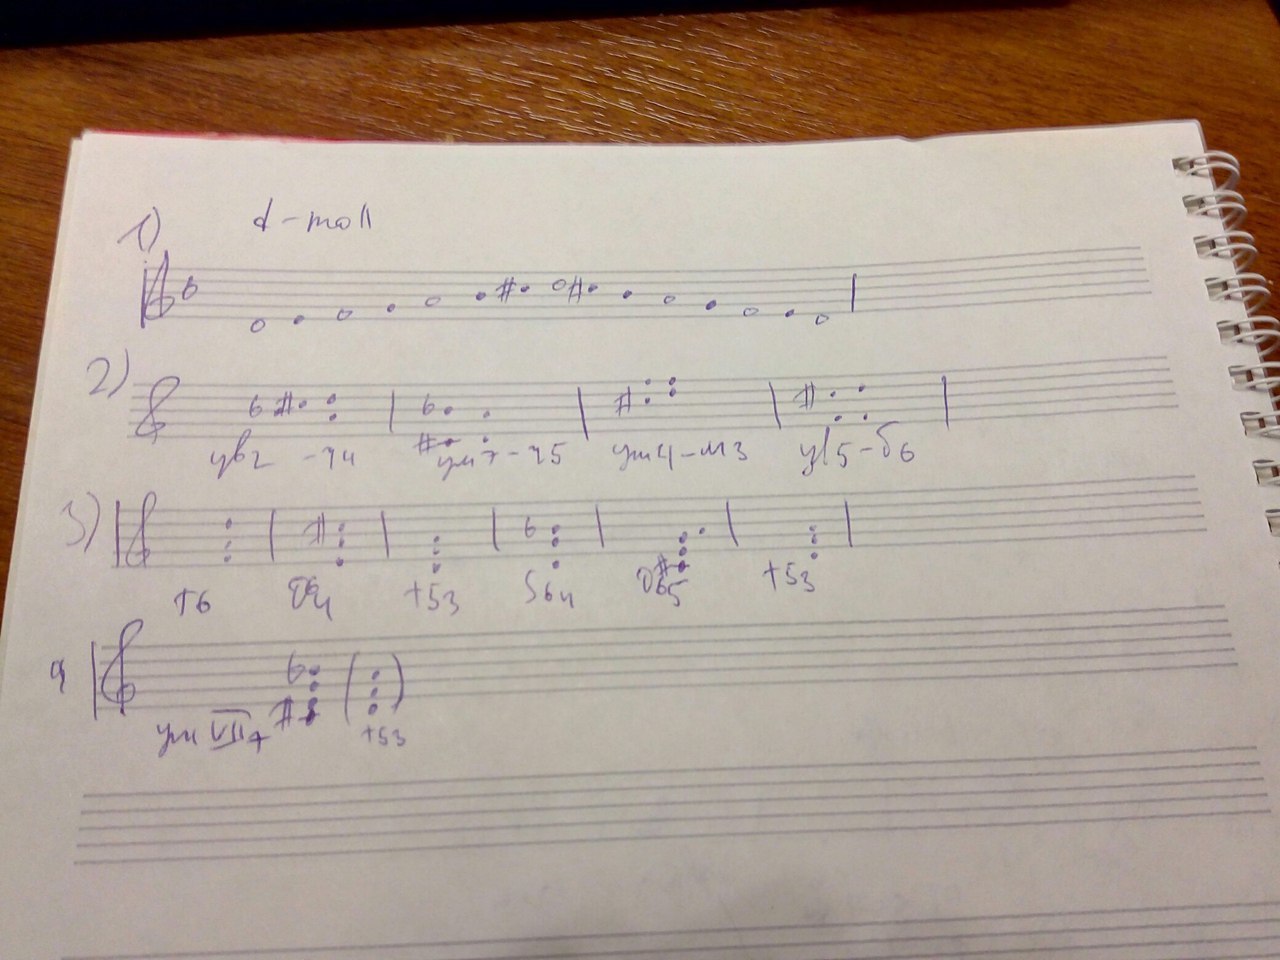 1) d-moll
2)
ув2 -ч4 ум7-ч5 ум4-м3 ув5-б6
3)
т6 D64 т53 S64 D65 т53
4
ум VII7 т53